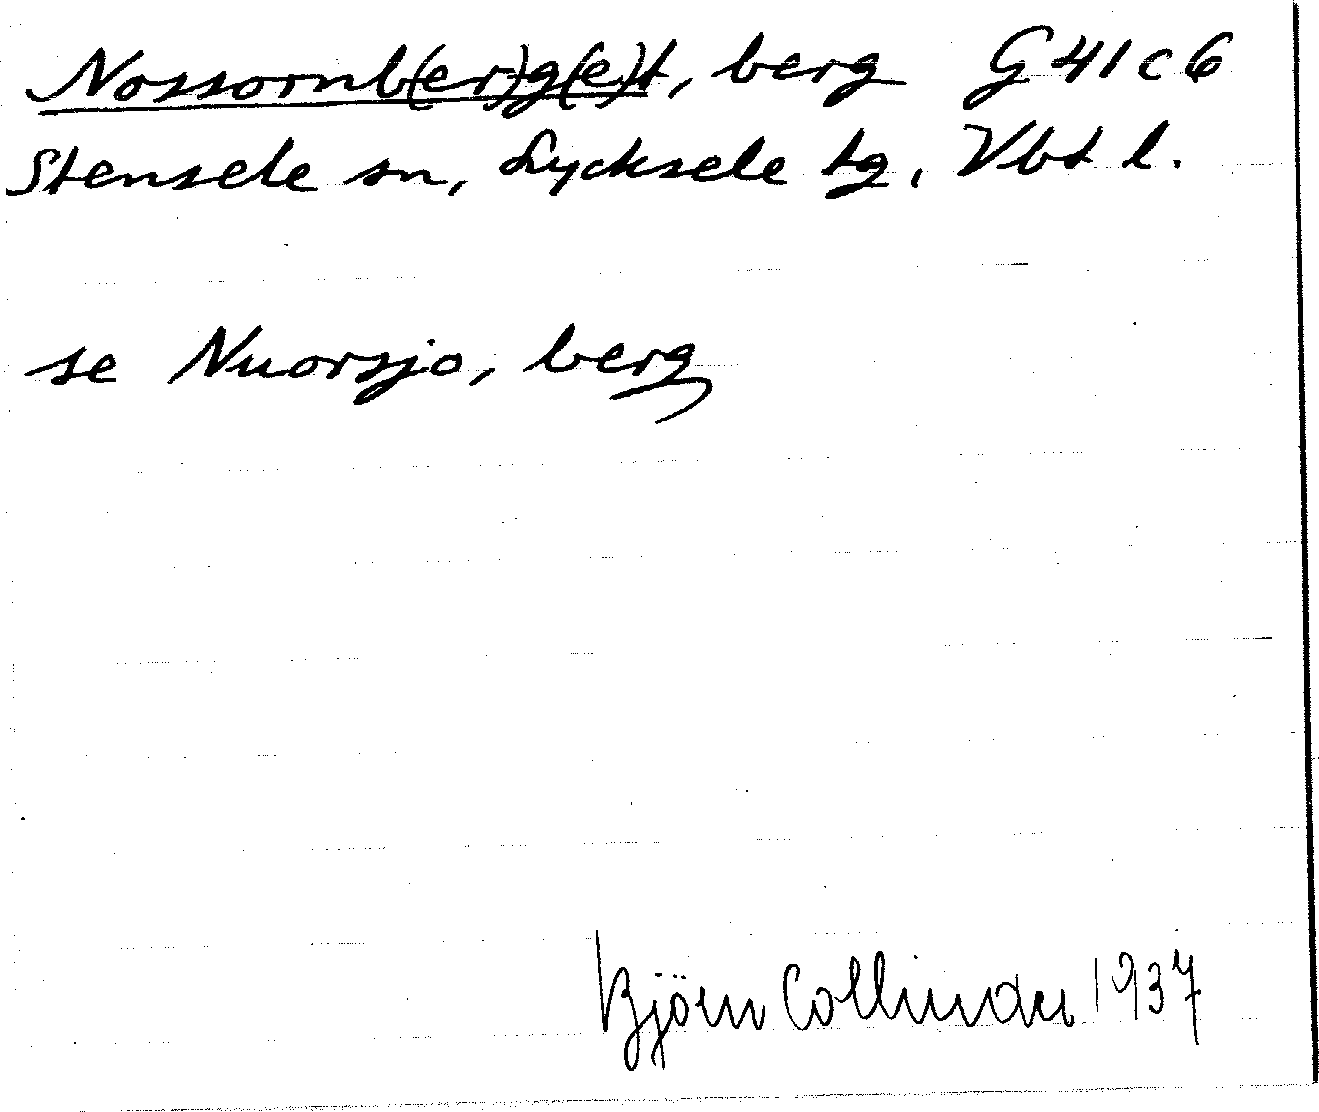 Nossornb(er)g(e)t, berg G 41 c 6
Stensele sn, Lycksele tg, Vbt l.
se Nuorsjo, berg
Björn Collinder 1937